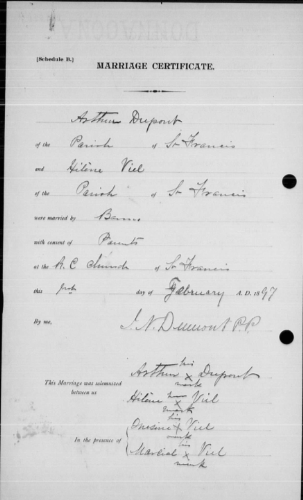 [Schedule B.]
MARRIAGE CERTIFICATE.
Arthur Dupont
of the Parish of St Francis
and Hilène Viel
of the Parish of St Francis
were married by Banns
with consent of Parents
at the R. C. Church of St Francis
this day of February A.D. 1897
By me,
J. N. Dumont P.P.
This Marriage was solemnized between us
Arthur his x mark Dupont
Hilène her x mark Viel
In the presence of
Onesime his x mark Viel
Martial his x mark Viel